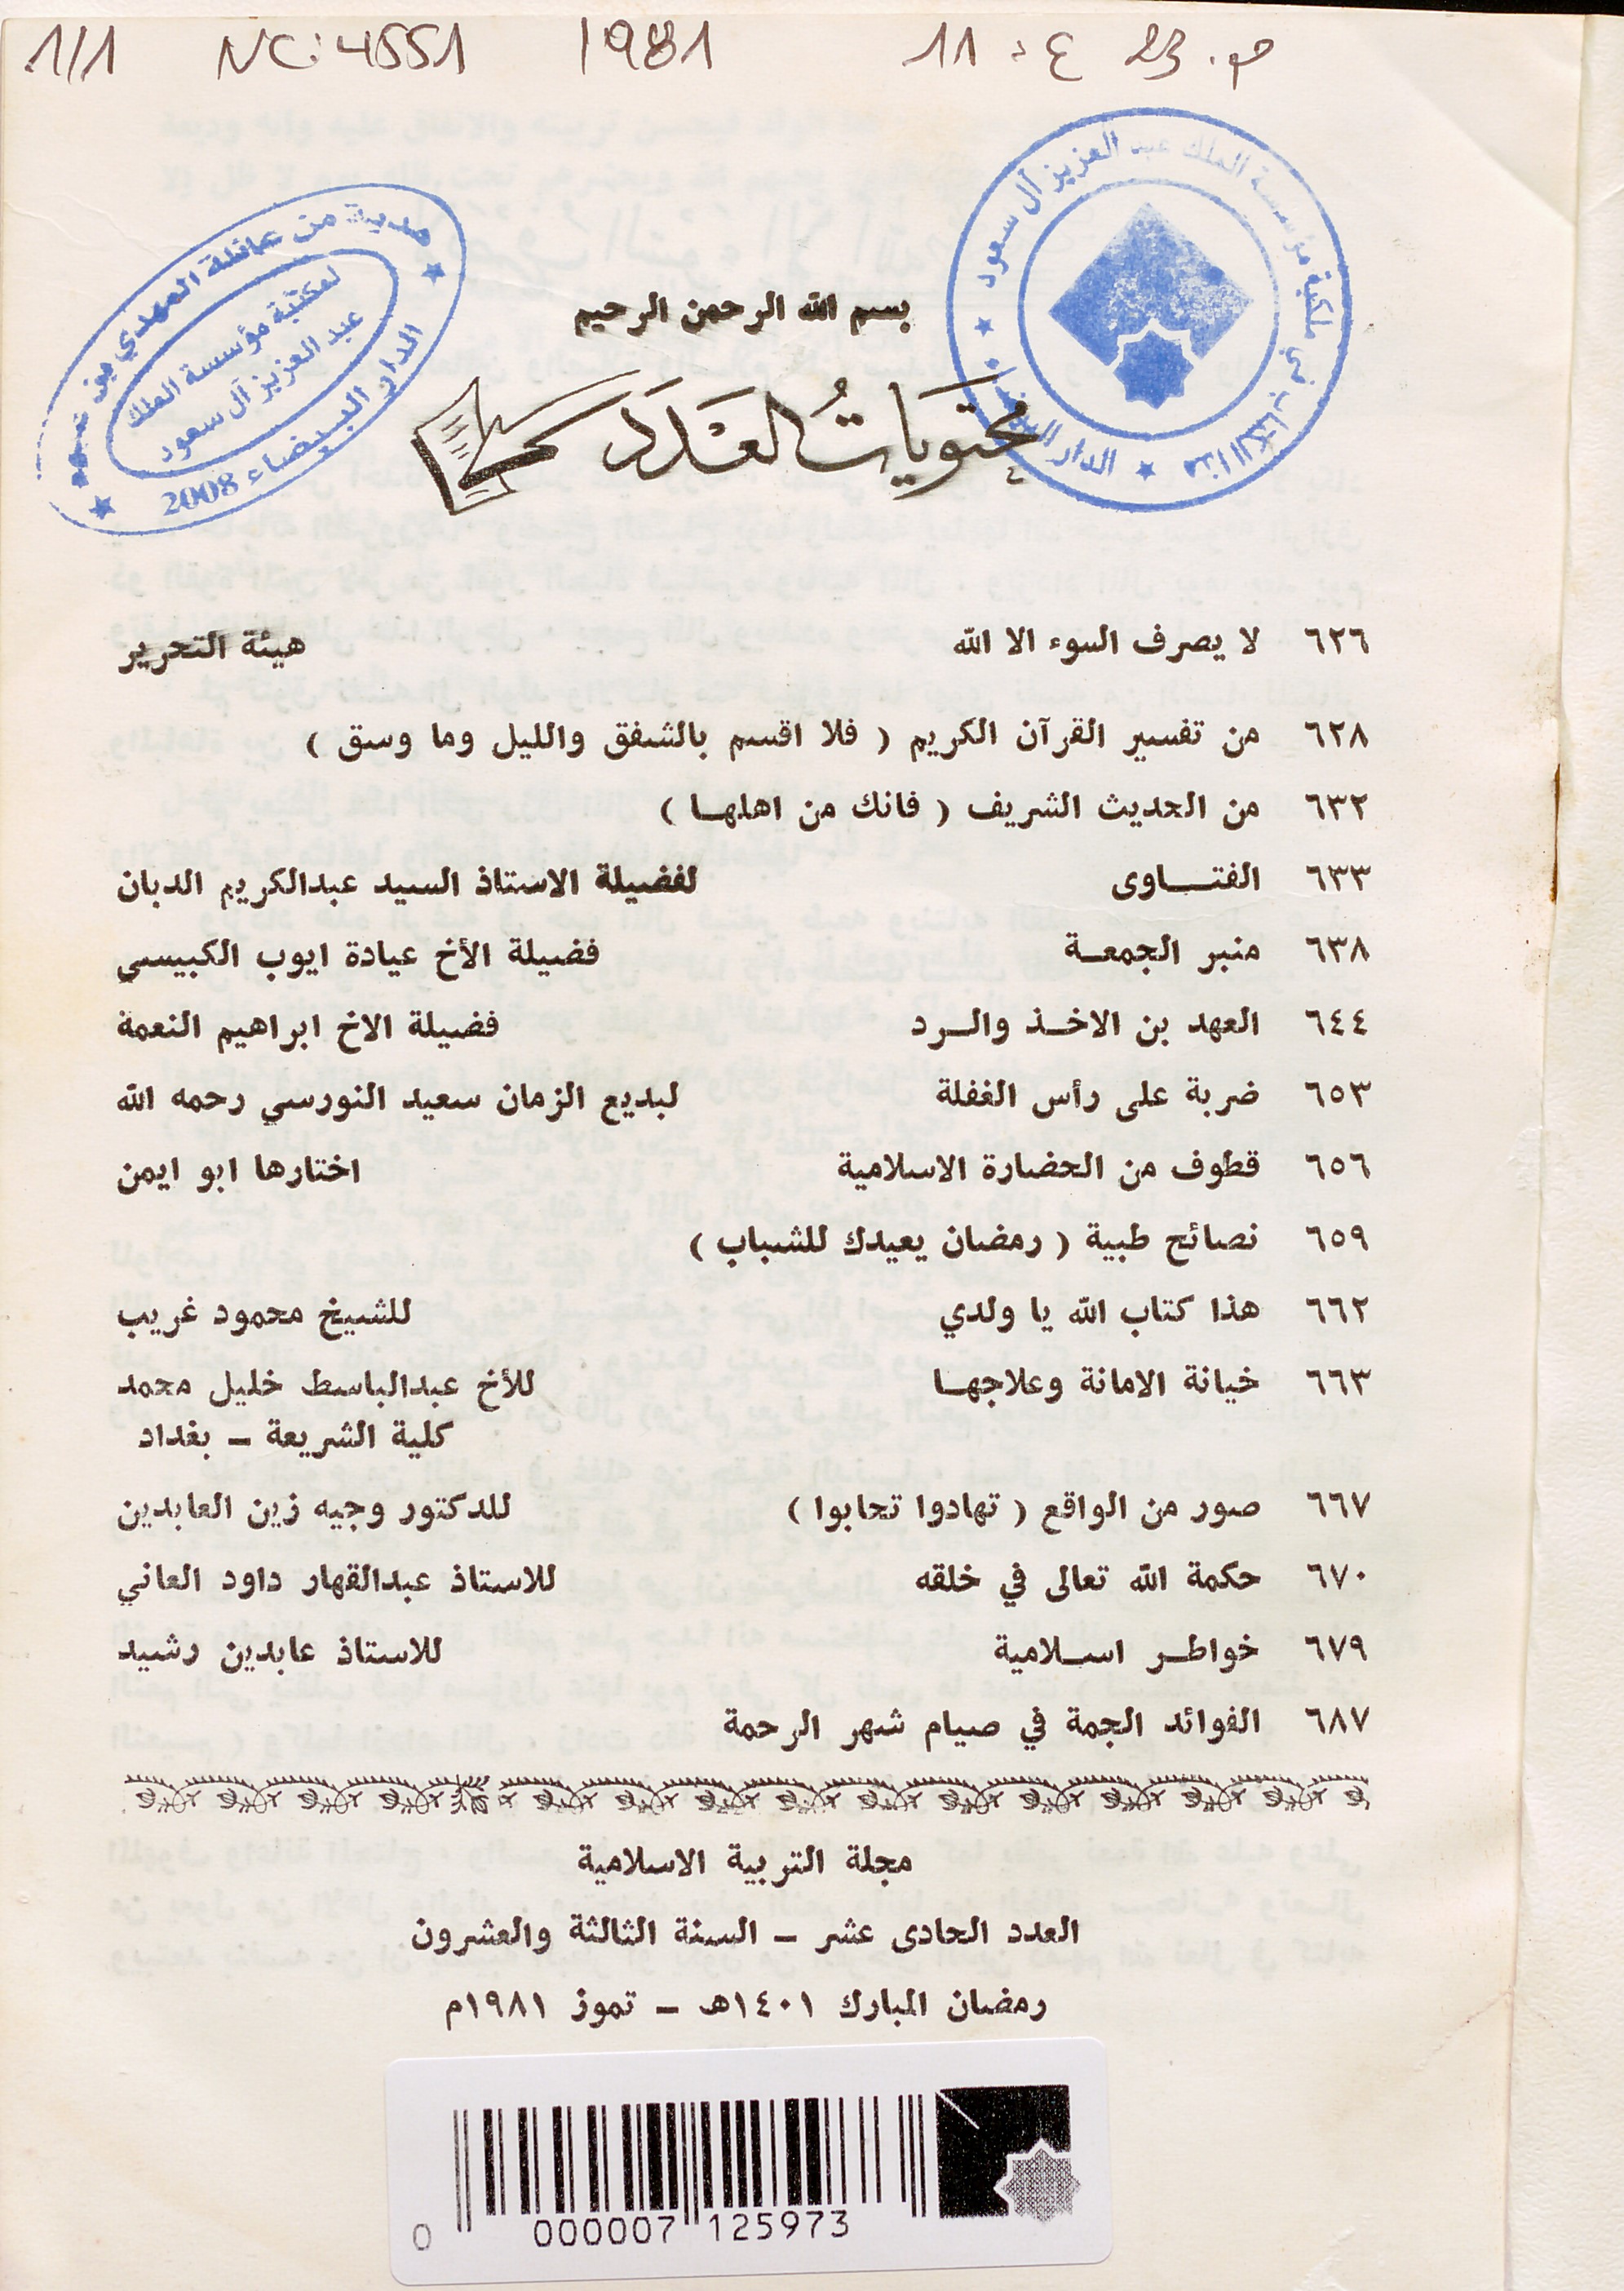 1/1 NC: 4551 1981 ع: 11 م. 23
هدية من عائلة المهدي بن
لمكتبة مؤسسة الملك
عبد العزيز آل سعود
الدار البيضاء 2008
هذا الكتاب في ملكية مؤسسة الملك عبد العزيز آل سعود
الدار البيضاء
بسم الله الرحمن الرحيم
محتويات العدد
٦٢٦ لا يصرف السوء الا الله هيئة التحرير
٦٢٨ من تفسير القرآن الكريم ( فلا اقسم بالشفق والليل وما وسق )
٦٣٢ من الحديث الشريف ( فانك من اهلها )
٦٣٣ الفتاوى لفضيلة الاستاذ السيد عبدالكريم الدبان
٦٣٨ منبر الجمعة فضيلة الأخ عيادة ايوب الكبيسي
٦٤٤ العهد بن الاخذ والرد فضيلة الاخ ابراهيم النعمة
٦٥٣ ضربة على رأس الغفلة لبديع الزمان سعيد النورسي رحمه الله
٦٥٦ قطوف من الحضارة الاسلامية اختارها ابو ايمن
٦٥٩ نصائح طبية ( رمضان يعيدك للشباب )
٦٦٢ هذا كتاب الله يا ولدي للشيخ محمود غريب
٦٦٣ خيانة الامانة وعلاجها للأخ عبدالباسط خليل محمد
كلية الشريعة – بغداد
٦٦٧ صور من الواقع ( تهادوا تحابوا ) للدكتور وجيه زين العابدين
٦٧٠ حكمة الله تعالى في خلقه للاستاذ عبدالقهار داود العاني
٦٧٩ خواطر اسلامية للاستاذ عابدين رشيد
٦٨٧ الفوائد الجمة في صيام شهر الرحمة
مجلة التربية الاسلامية
العدد الحادى عشر – السنة الثالثة والعشرون
رمضان المبارك ١٤٠١هـ – تموز ١٩٨١م
0 000007 125973